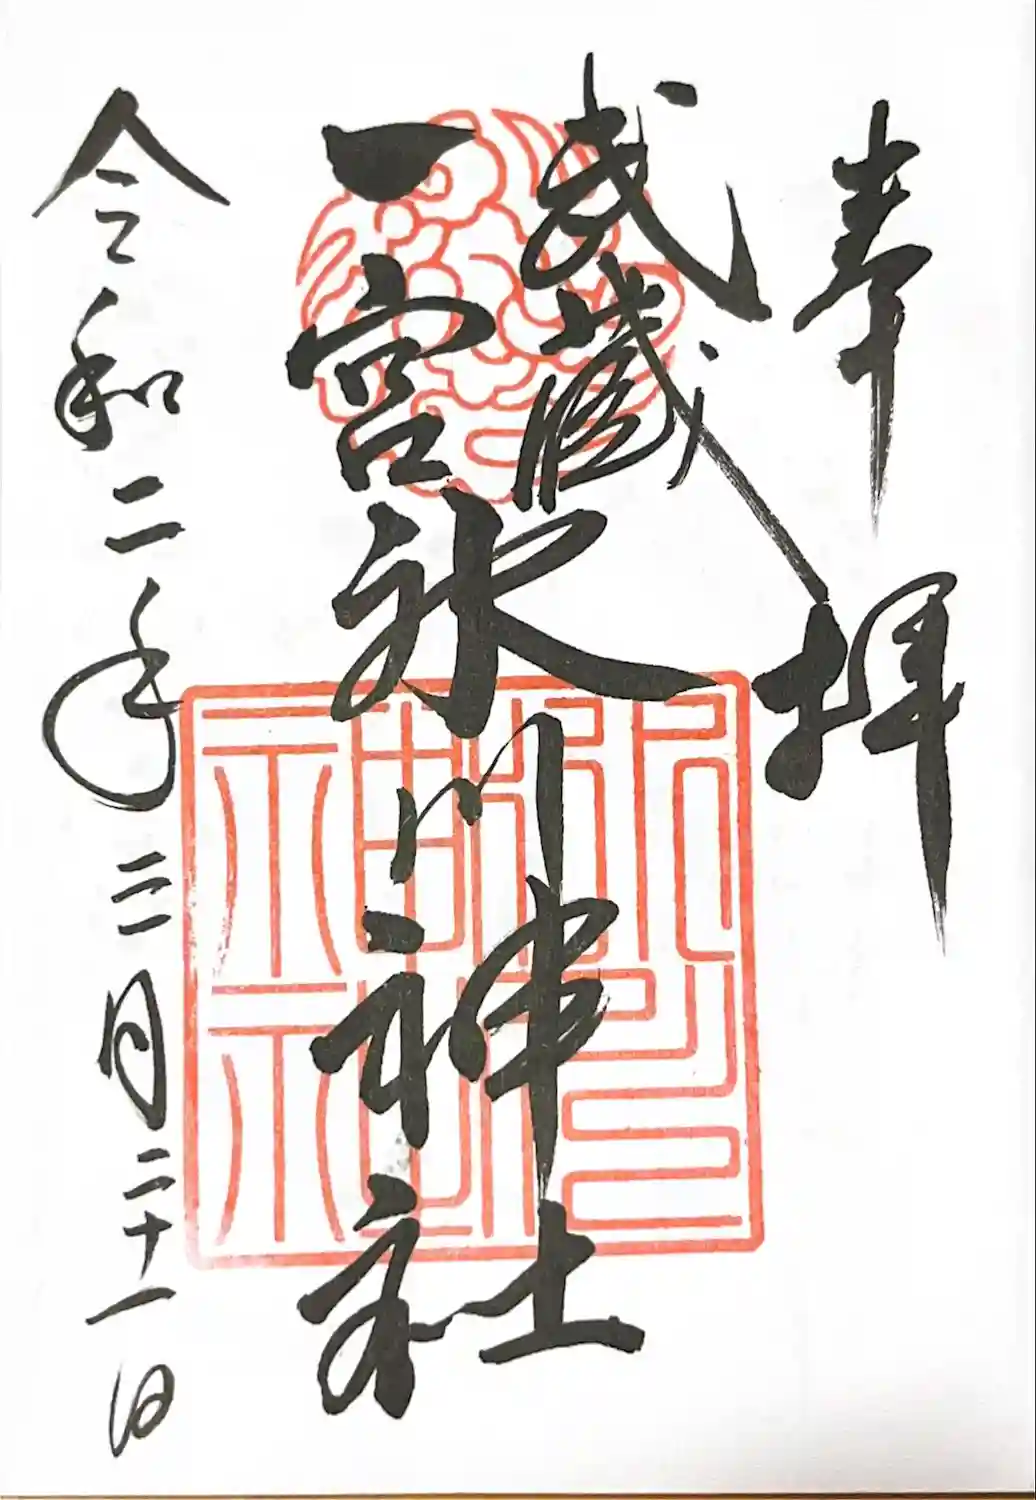 奉拝
武蔵
一宮氷川神社
令和二年三月二十一日